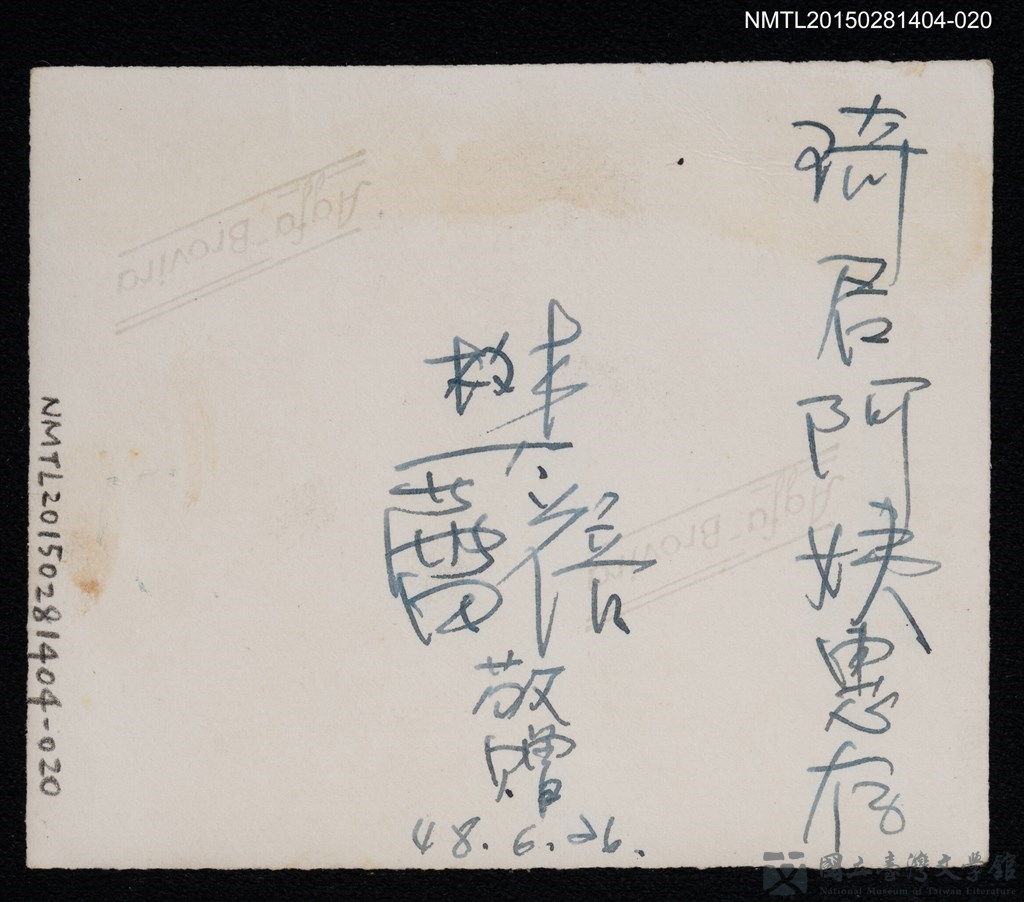 NMTL20150281404-020
琦君阿姨惠存
敬贈
48.6.26.
Agfa-Brovira
Agfa-Brovira
NMTL20150281404-020
國立臺灣文學館
National Museum of Taiwan Literature